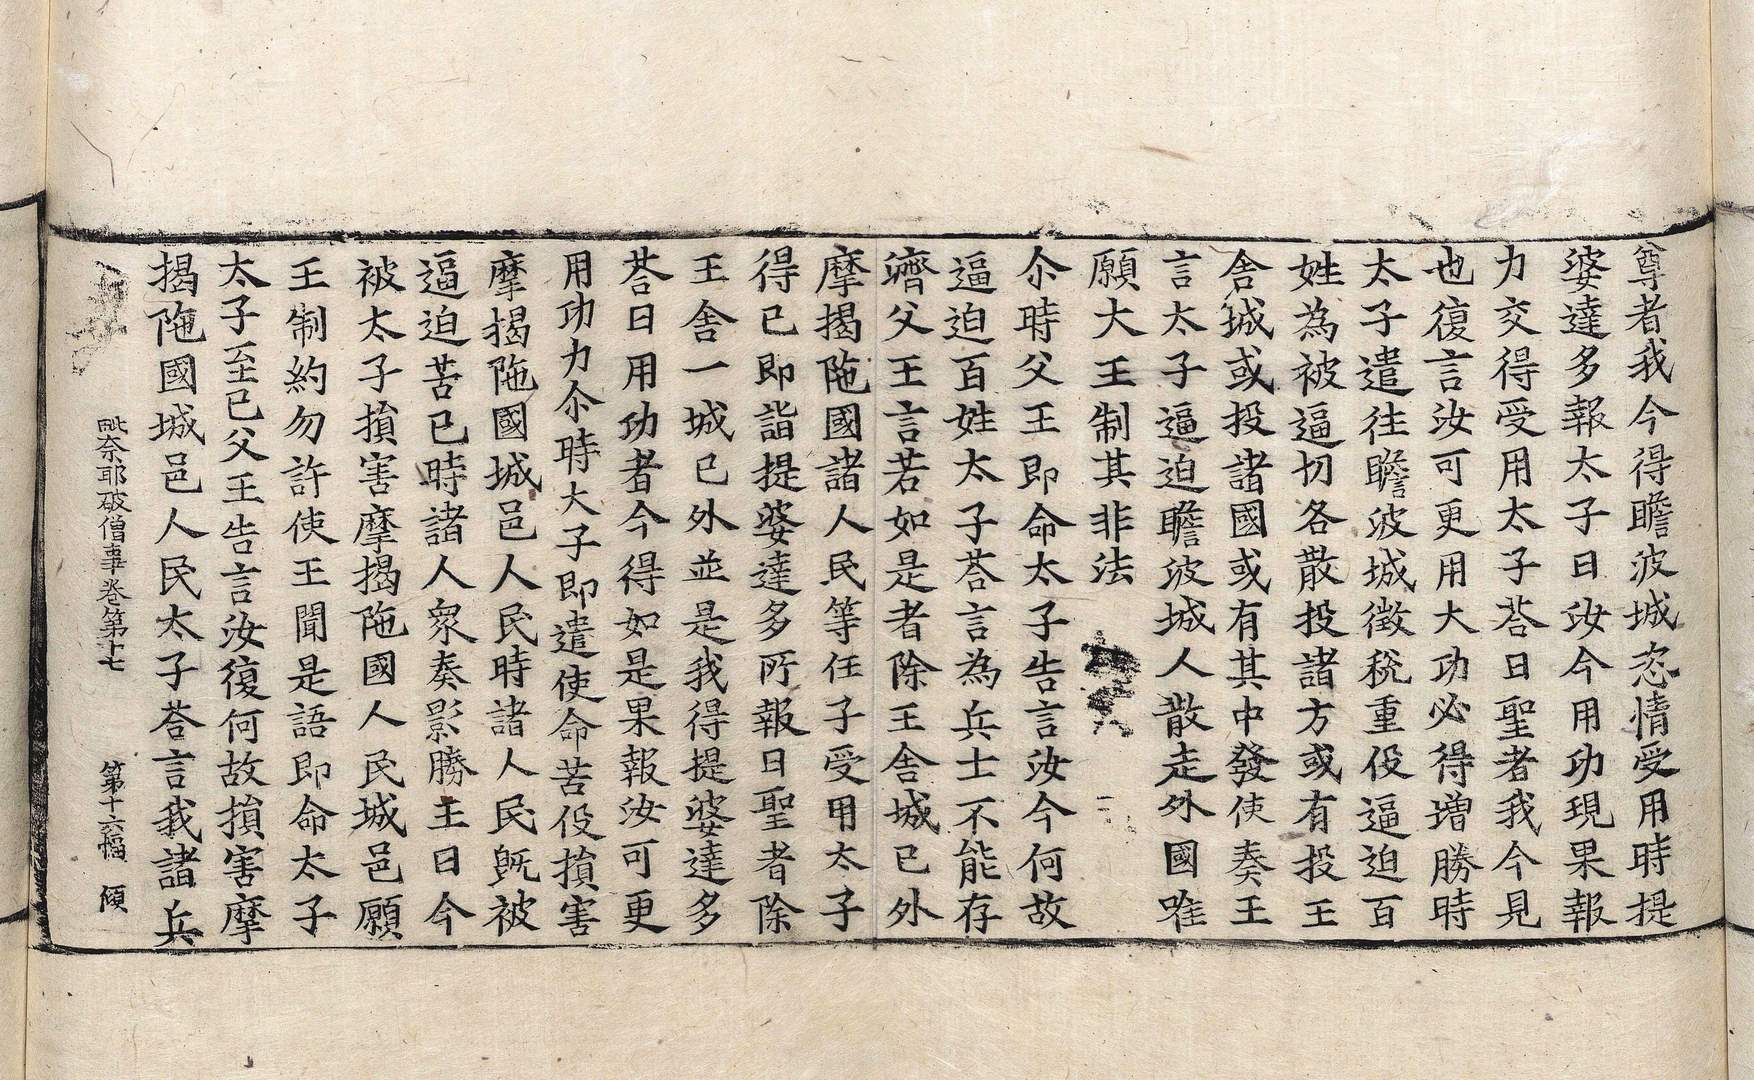 尊者我今得瞻波城恣情受用時提
婆達多報太子曰汝今用功現果報
力交得受用太子荅曰聖者我今見
也復言汝可更用大功必得增勝時
太子遣往瞻波城徵稅重伇逼迫百
姓為被逼切各散投諸方或有投王
舍城或投諸國或有其中發使奏王
言太子逼迫瞻波城人散走外國唯
願大王制其非法
尒時父王即命太子告言汝今何故
逼迫百姓太子荅言為兵士不能存
濟父王言若如是者除王舍城已外
摩揭陁國諸人民等任子受用太子
得已即詣提婆達多所報曰聖者除
王舍一城已外並是我得提婆達多
荅曰用功者今得如是果報汝可更
用功力尒時大子即遣使命苦伇損害
摩揭陁國城邑人民時諸人民既被
逼迫苦已時諸人衆奏影勝王曰今
被太子損害摩揭陁國人民城邑願
王制約勿許使王聞是語即命太子
太子至已父王告言汝復何故損害摩
揭陁國城邑人民太子荅言我諸兵
毗奈耶破僧事卷第十七 第十六幅 傾